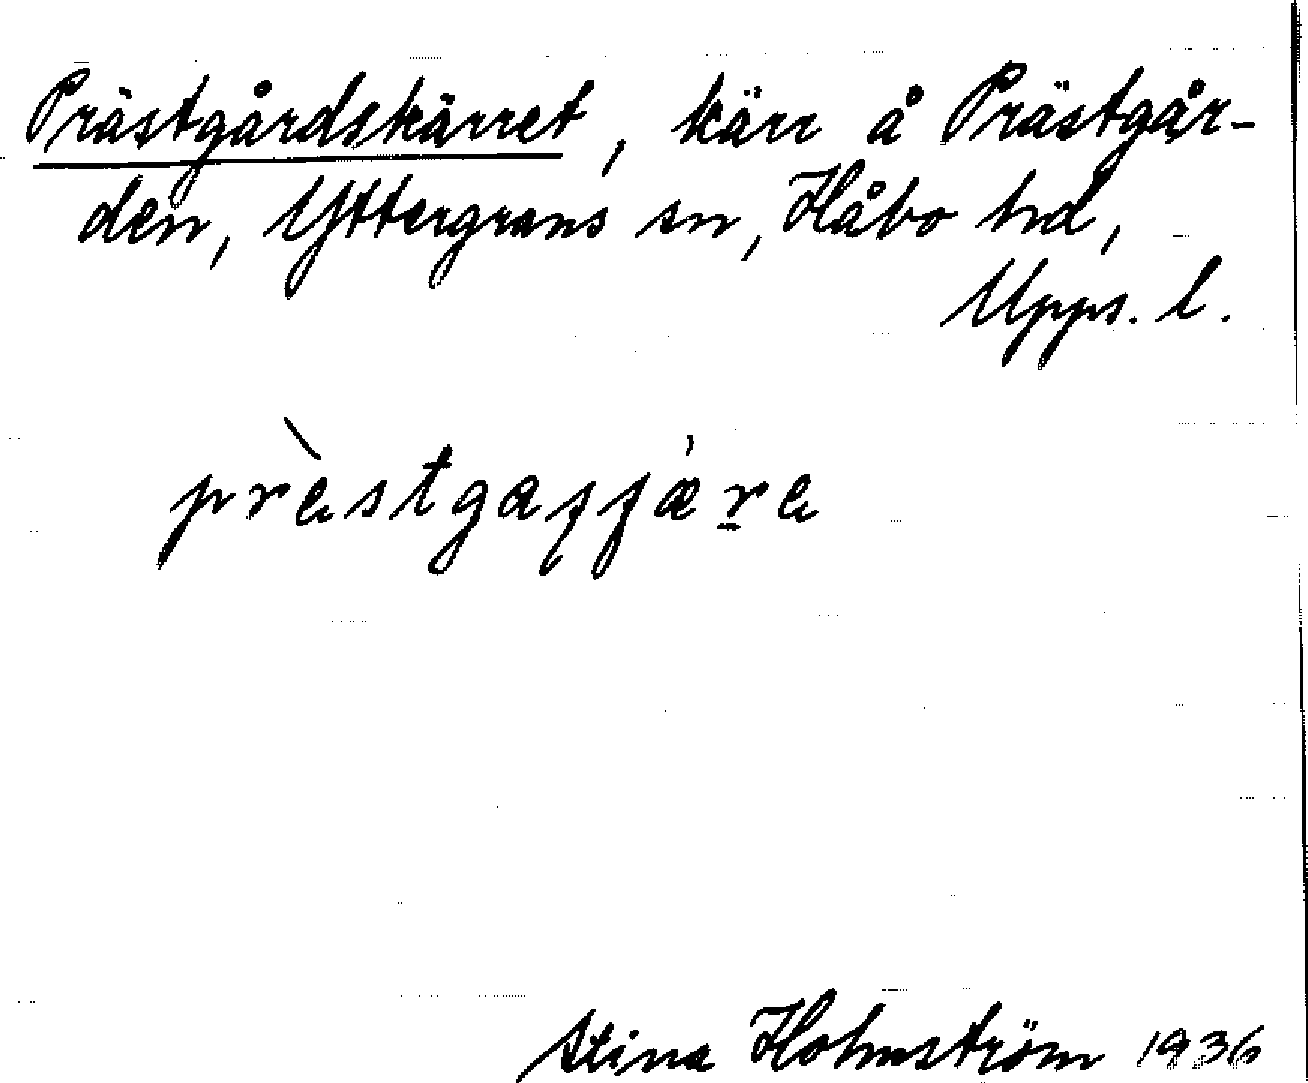 Prästgårdskärret, kärr å Prästgår-
den, Yttergrans sn, Håbo hd,
Upps. l.
Stina Holmström 1936